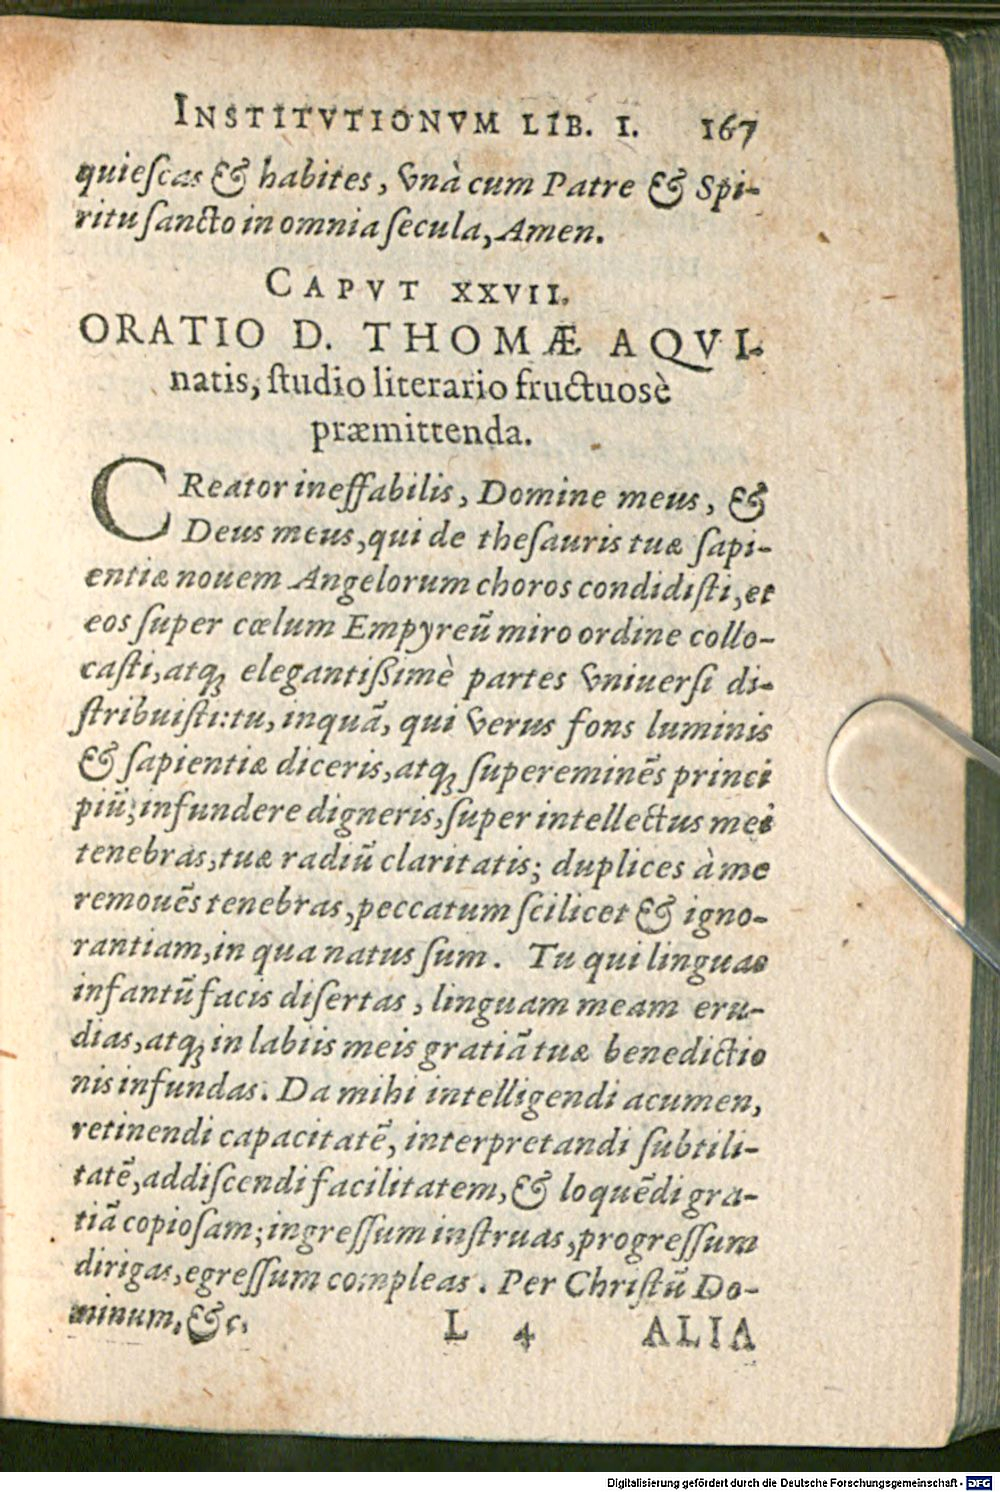 INSTITVTIONVM LIB. I. 167
quieſcas & habites, vnà cum Patre & Spi-
ritu ſancto in omnia ſecula, Amen.
CAPVT XXVII.
ORATIO D. THOMÆ AQVI-
natis, ſtudio literario fructuosè
præmittenda.
CReator ineffabilis, Domine meus, &
Deus meus, qui de theſauris tuæ ſapi-
entiæ nouem Angelorum choros condidiſti, et
eos ſuper cœlum Empyreũ miro ordine collo-
caſti, atq; elegantiſsimè partes vniuerſi di-
ſtribuiſti: tu, inquã, qui verus fons luminis
& ſapientiæ diceris, atq; ſupereminẽs princi
piũ; infundere digneris, ſuper intellectus mei
tenebras, tuæ radiũ claritatis; duplices à me
remouẽs tenebras, peccatum ſcilicet & igno-
rantiam, in qua natus ſum. Tu qui linguas
infantũ facis diſertas, linguam meam eru-
dias, atq; in labiis meis gratiã tuæ benedictio
nis infundas. Da mihi intelligendi acumen,
retinendi capacitatẽ, interpretandi ſubtili-
tatẽ, addiſcendi facilitatem, & loquẽdi gra-
tiã copioſam; ingreſſum inſtruas, progreſſum
dirigas, egreſſum compleas. Per Chriſtũ Do-
minum, &c.
L 4 ALIA
Digitalisierung gefördert durch die Deutsche Forschungsgemeinschaft - DFG